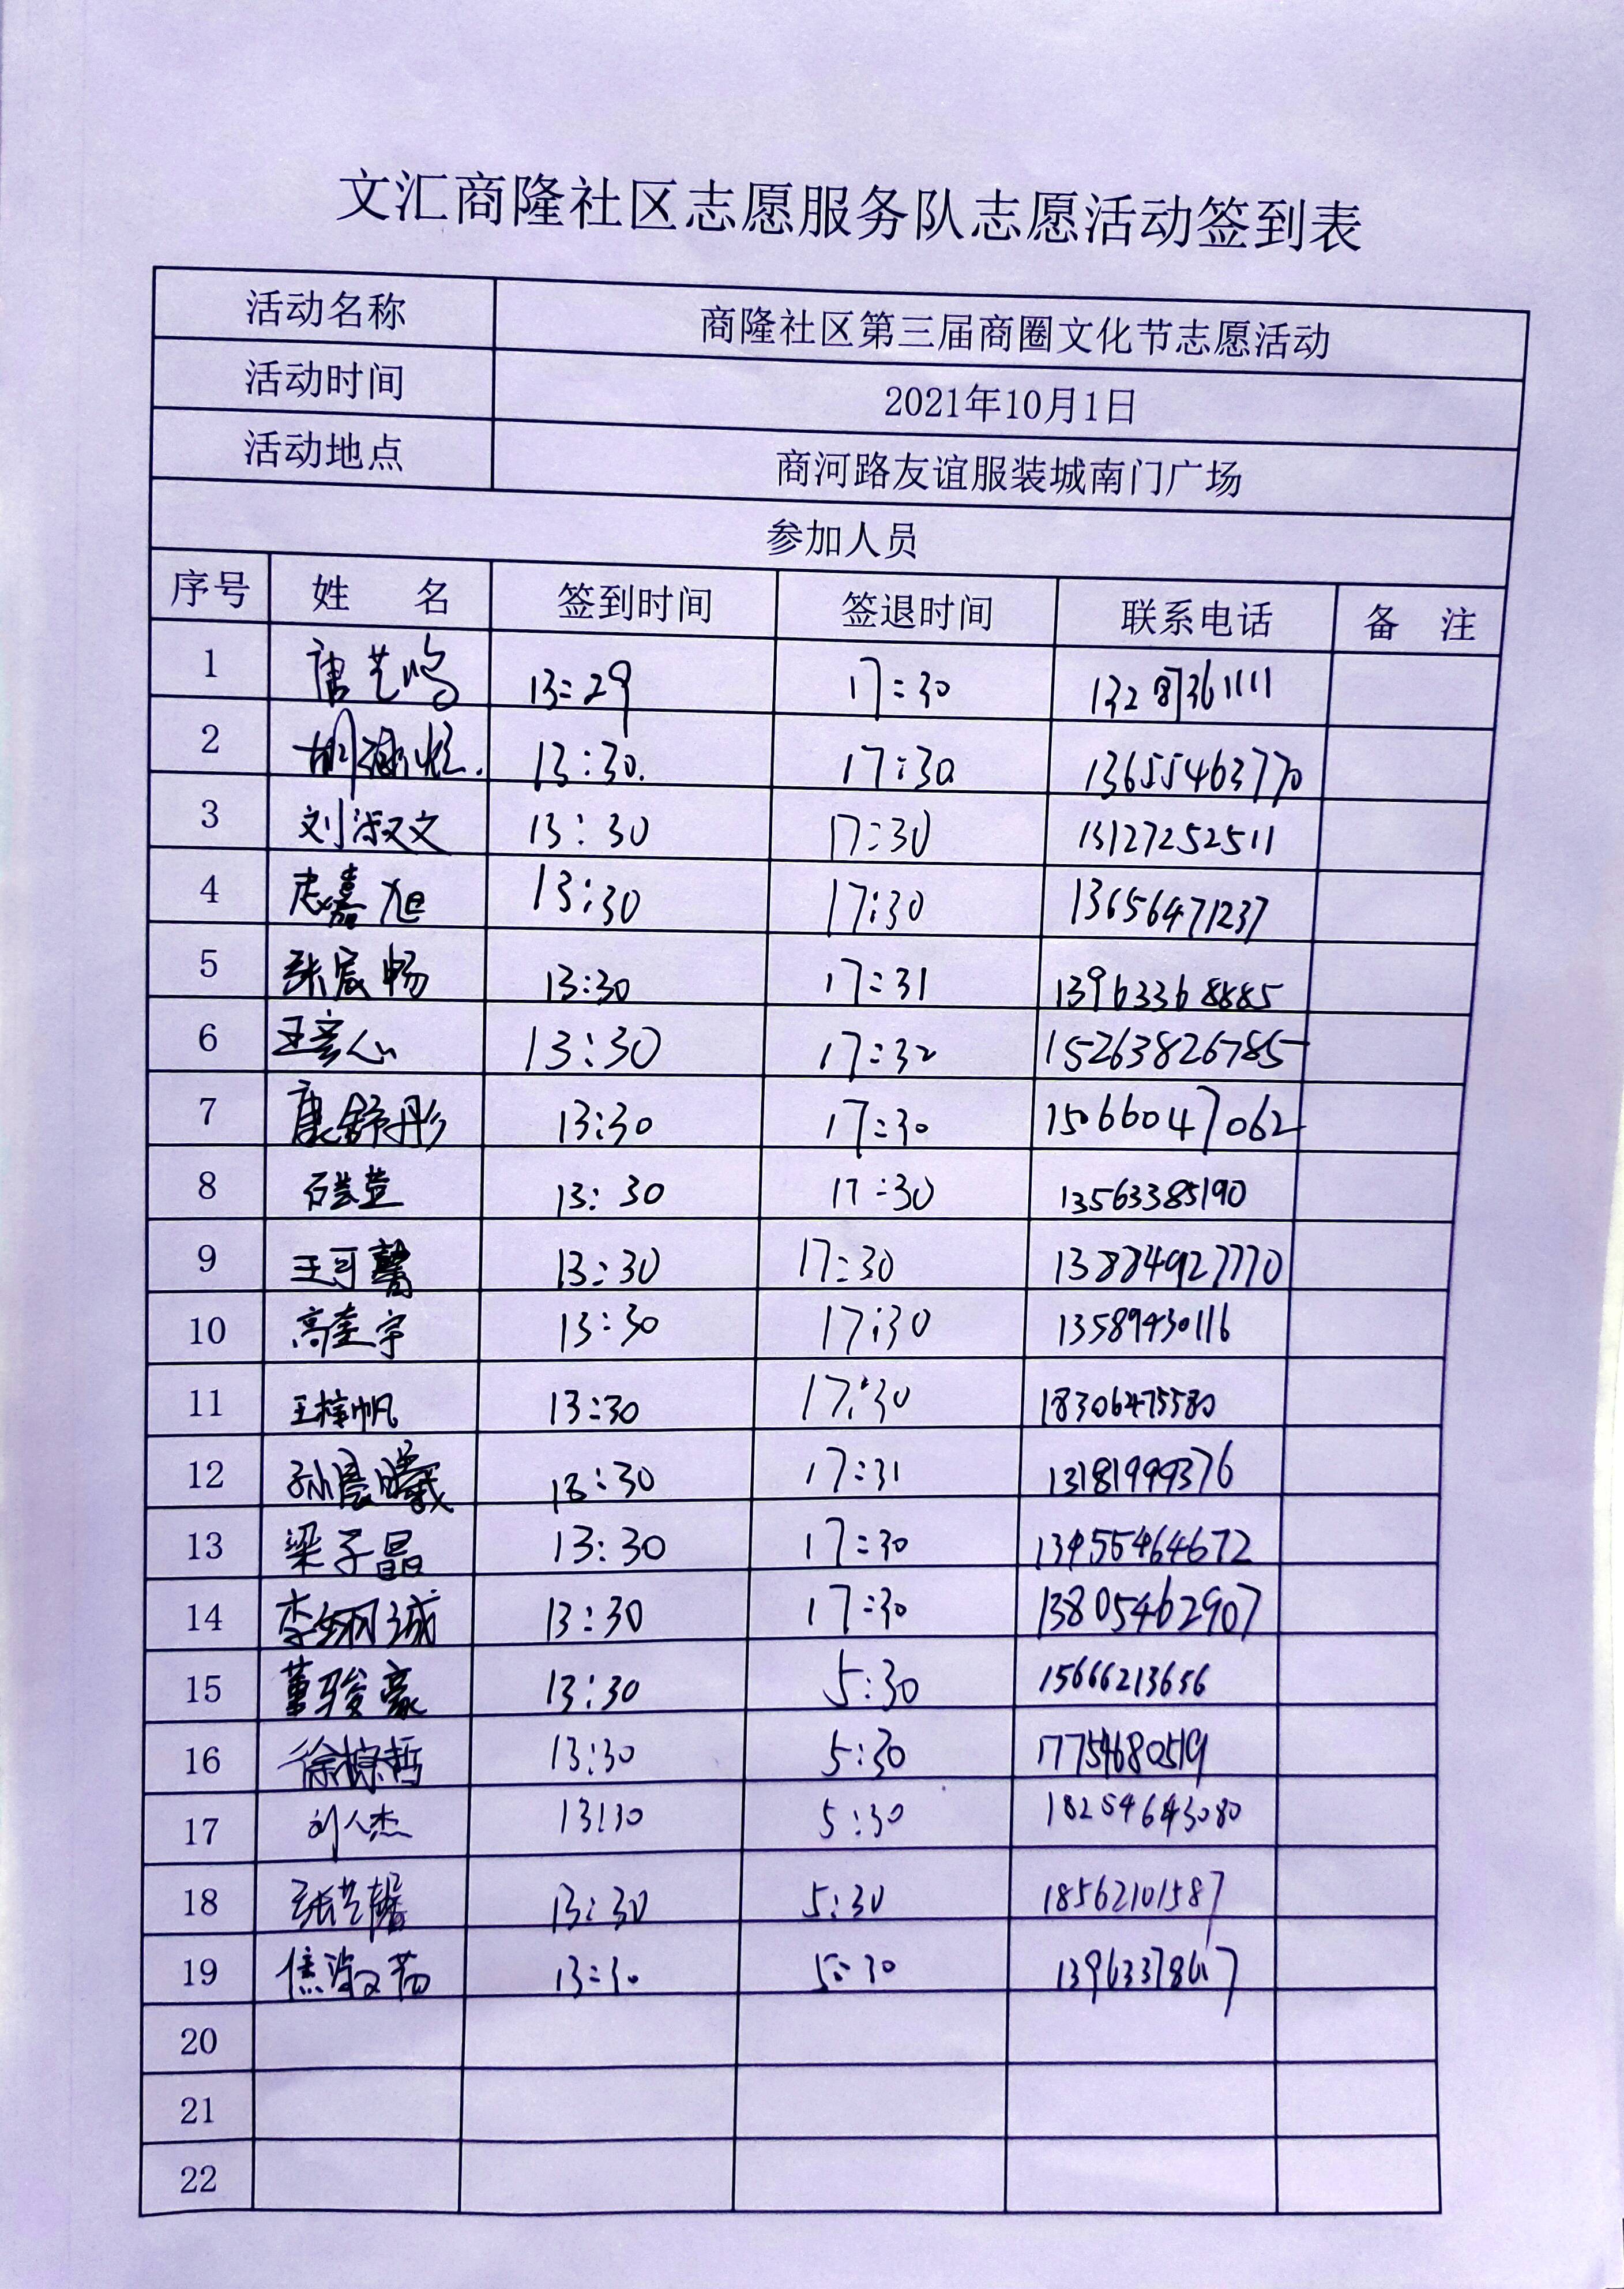 文汇商隆社区志愿服务队志愿活动签到表
活动名称 商隆社区第三届商圈文化节志愿活动
活动时间 2021年10月1日
活动地点 商河路友谊服装城南门广场
参加人员
序号 姓 名 签到时间 签退时间 联系电话 备 注
1 唐艺鸣 13:29 17:30
2 13:30. 17:30. 13655463770
3 刘淑文 13:30 17:30 13127252511
4 嘉旭 13:30 17:30 13656471237
5 张宸畅 13:30 17:31 13963368885
6 王彦心 13:30 17:32 15263826785
7 康舒彤 13:30 17:30 15066047062
8 13:30 17:30 13563385190
9 王可馨 13:30 17:30 13884927770
10 高奎宇 13:30 17:30 13589430116
11 王梓帆 13:30 17:30 18306475580
12 孙晨曦 13:30 17:31 13181999376
13 梁子晶 13:30 17:30
14 13:30 17:30 13805462907
15 董骏豪 13:30 5:30 15666213656
16 徐椋哲 13:30 5:30 17754680519
17 刘人杰 13:30 5:30 18254643080
18 张艺馨 13:30 5:30 18562101587
19 焦淑茹 13:30 5:30
20
21
22